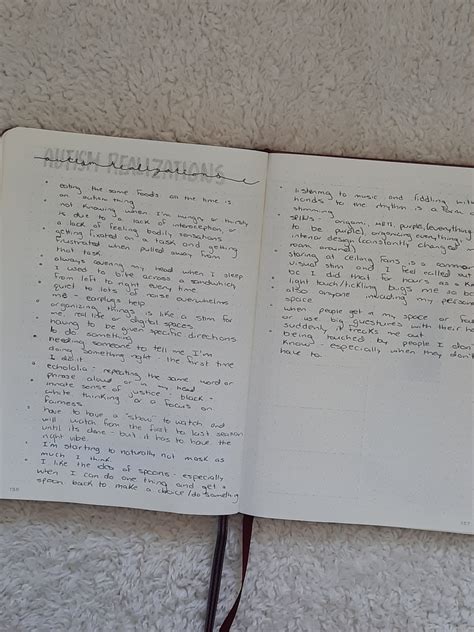 AUTISM REALIZATIONS
autism realizations
• eating the same foods all the time is
an autism thing
• not knowing when I'm hungry or thirsty
is due to a lack of interoception or
a lack of feeling bodily sensations
• getting fixated on a task and getting
frustrated when pulled away from
that task
• always covering my head when I sleep
• I used to bite across a sandwich
from left to right every time
• quiet to lots of noise overwhelms
me - earplugs help
• organizing things is like a stim for
me, real life or digital spaces
• having to be given specific directions
to do something
• needing someone to tell me I'm
doing something right the first time
I do it
• echolalia - repeating the same word or
phrase aloud or in my head
• innate sense of justice - black +
white thinking or a focus on
fairness
• have to have a "show" to watch and
will watch from the first to last season
until its done - but it has to have the
right vibe
• I'm starting to naturally not mask as
much I think
• I like the idea of spoons - especially
when I can do one thing and get a
spoon back to make a choice/do something
130
• listening to music and fiddling with
hands to the rhythm is a form
stimming
• origami, math, purple (everything
to be purple), organizing everything,
interior design (constantly changing
room around)
• staring at ceiling fans is a common
visual stim and I feel called out
bc I did that for hours as a
• light touch/tickling bugs me so
also anyone invading my personal
space
• when people get in my space or
or use big guestures with their
suddenly, it freaks me out
• being touched by people I don't
know - especially when they don't
have to.
131